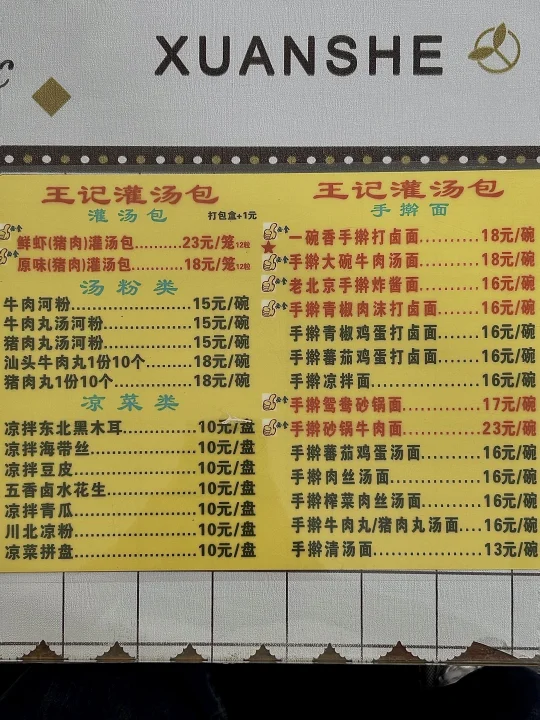 XUANSHE
王记灌汤包
灌汤包 打包盒+1元
鲜虾(猪肉)灌汤包..........23元/笼12粒
原味(猪肉)灌汤包..........18元/笼12粒
汤粉类
牛肉河粉..........................15元/碗
牛肉丸汤河粉...................15元/碗
猪肉丸汤河粉...................15元/碗
汕头牛肉丸1份10个..........18元/碗
猪肉丸1份10个.................18元/碗
凉菜类
凉拌东北黑木耳................10元/盘
凉拌海带丝.......................10元/盘
凉拌豆皮..........................10元/盘
五香卤水花生...................10元/盘
凉拌青瓜..........................10元/盘
川北凉粉..........................10元/盘
凉菜拼盘..........................10元/盘
王记灌汤包
手擀面
一碗香手擀打卤面...........18元/碗
手擀大碗牛肉汤面...........18元/碗
老北京手擀炸酱面...........16元/碗
手擀青椒肉沫打卤面........16元/碗
手擀青椒鸡蛋打卤面........16元/碗
手擀蕃茄鸡蛋打卤面........16元/碗
手擀凉拌面.....................16元/碗
手擀鸳鸯砂锅面..............17元/碗
手擀砂锅牛肉面..............23元/碗
手擀蕃茄鸡蛋汤面...........16元/碗
手擀肉丝汤面..................16元/碗
手擀榨菜肉丝汤面...........16元/碗
手擀牛肉丸/猪肉丸汤面....16元/碗
手擀清汤面.....................13元/碗